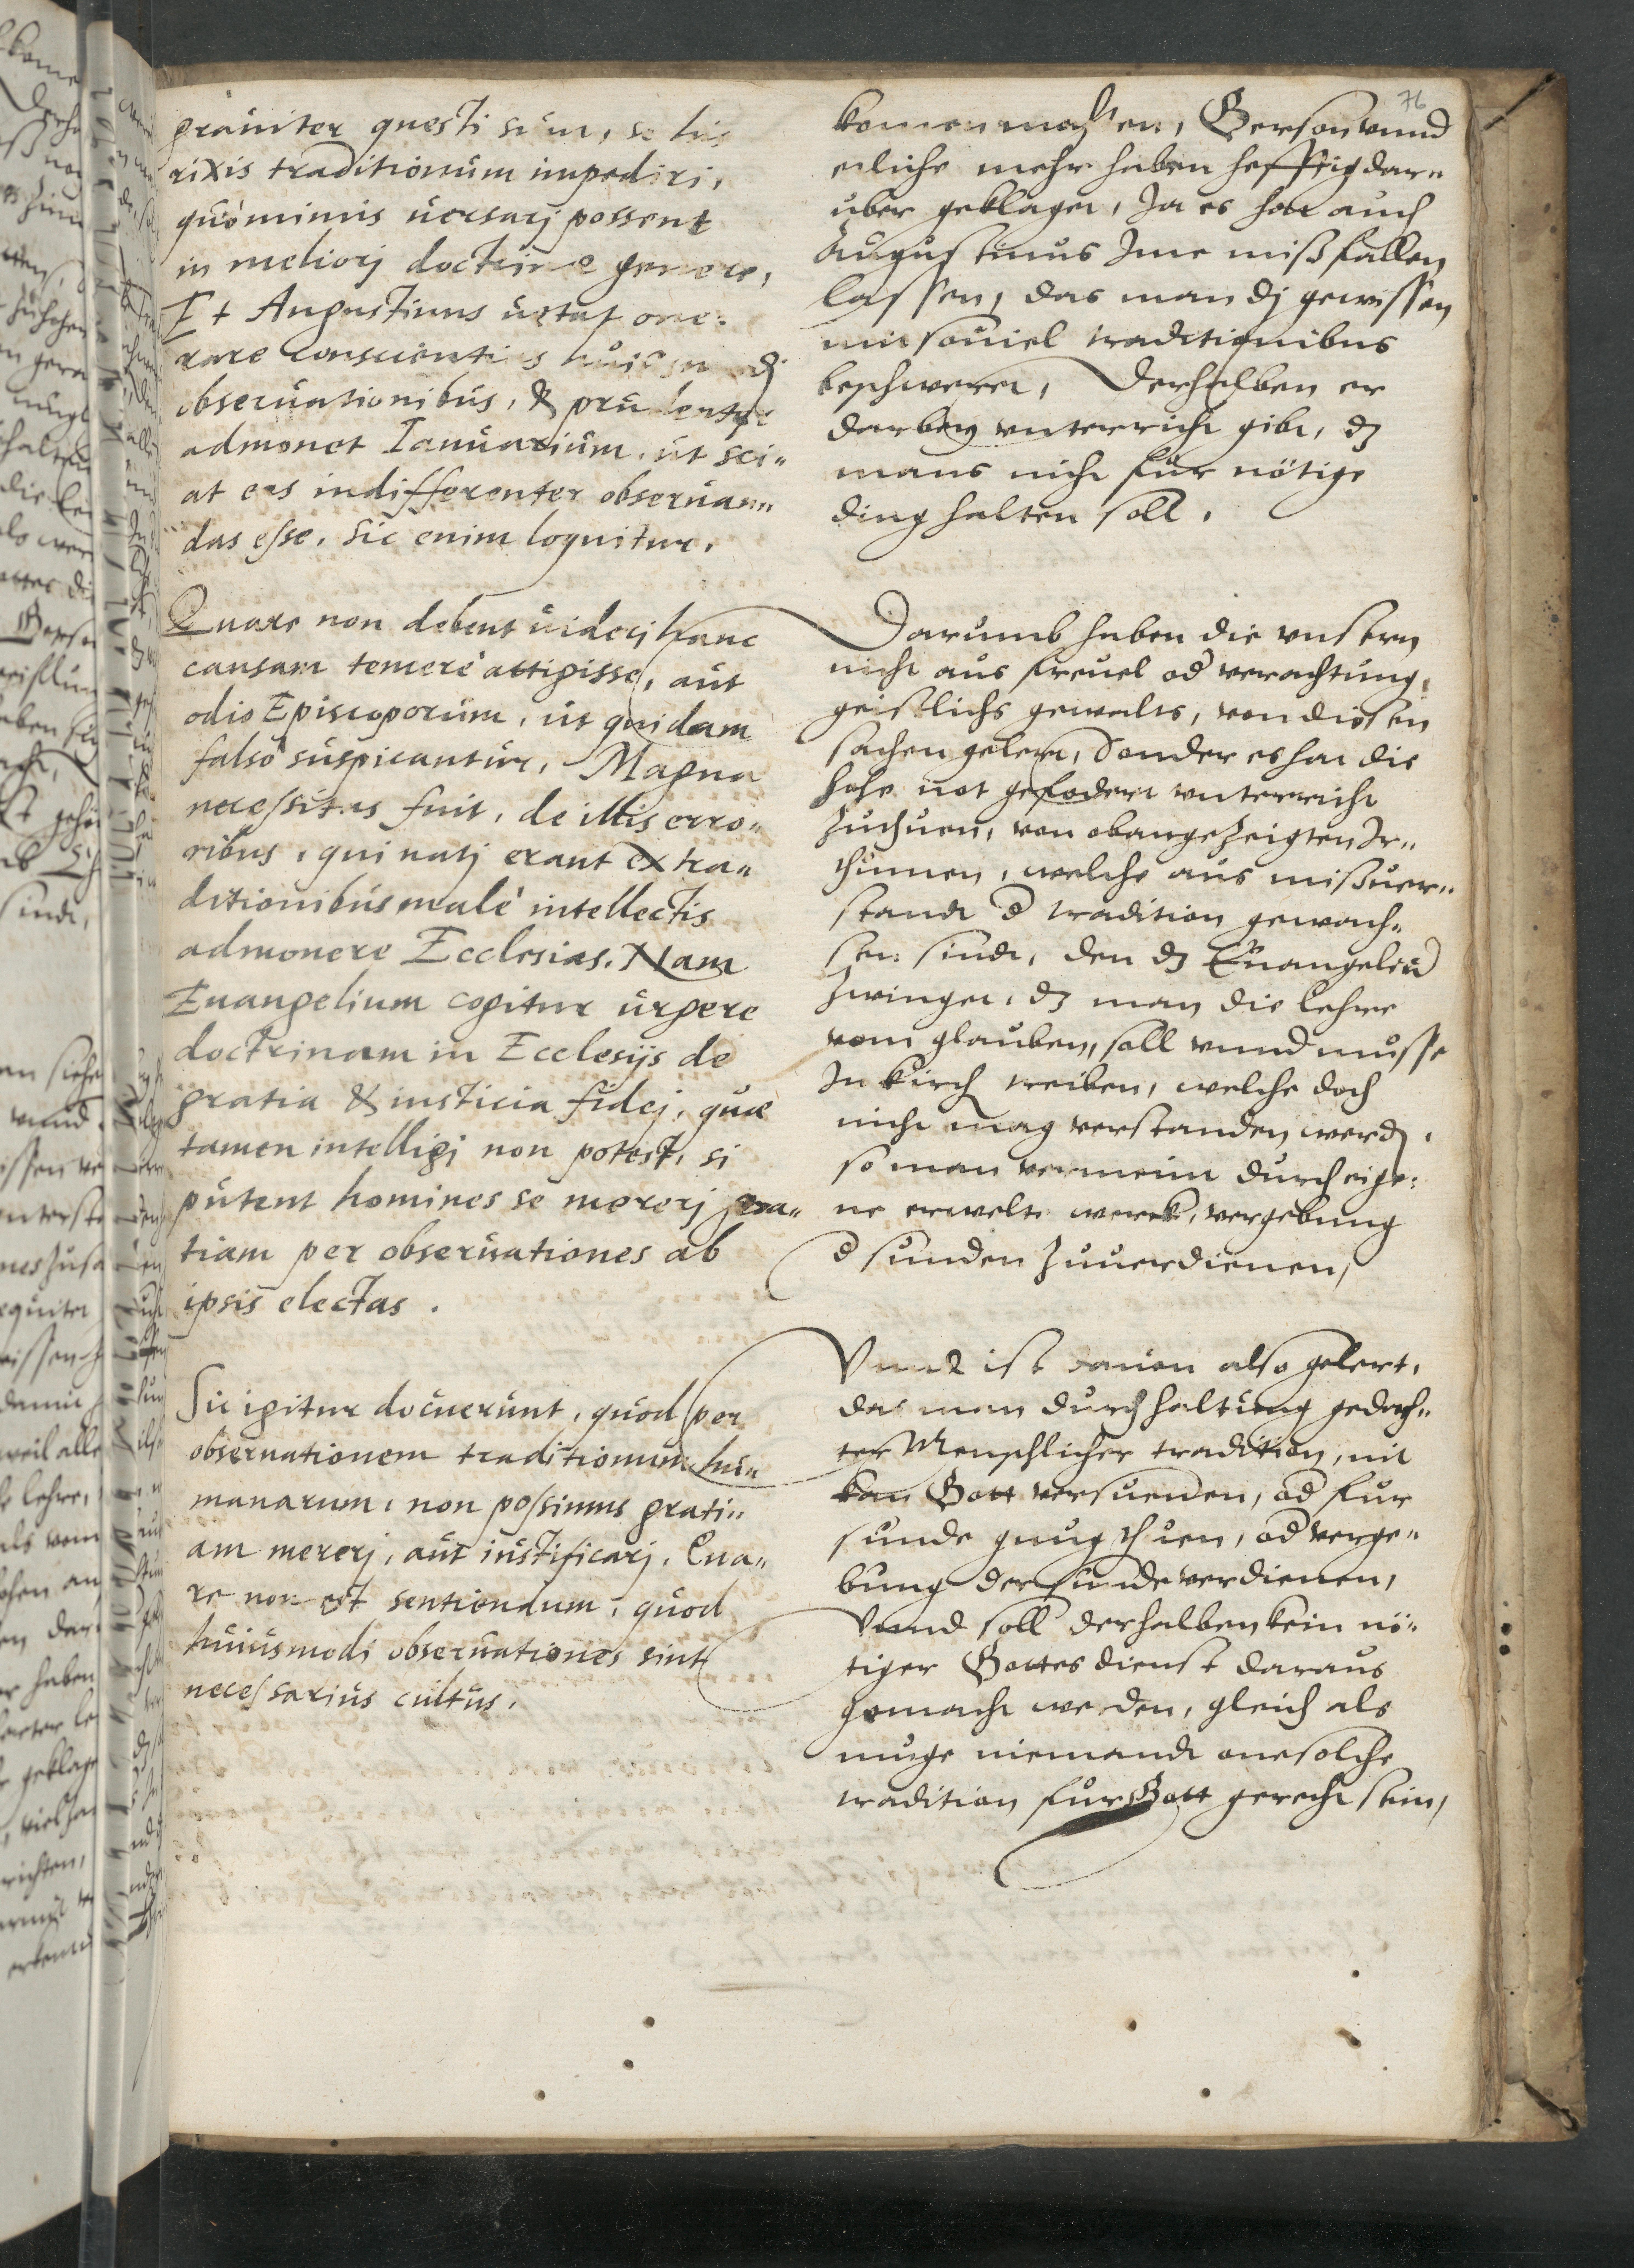 76
grauiter questi sunt, se his
rixis traditionum impediri,
quò minus uersarj possent
in meliorj doctrinæ genere,
Et Augustinus uetat one-
rare conscientias huiusmodj
obseruationibus, & prudenter
admonet Ianuarium, ut sci-
at eas indifferenter obseruan-
das esse, sic enim loquitur.
Quare non debent uiderj hanc
causam temerè attigisse, aut
odio Episcoporum, ut quidam
falsò suspicantur, Magna
necessitas fuit, de illis erro-
ribus, qui natj erant ex tra-
ditionibus malè intellectis
admonere Ecclesias. Nam
Euangelium cogitur urgere
doctrinam in Ecclesijs de
gratia & iusticia fidej, quæ
tamen intelligj non potest, si
putent homines se mererj gra-
tiam per obseruationes ab
ipsis electas.
Sic igitur docuerunt, quod per
obseruationem traditionum hu-
manarum, non possimus grati-
am mererj, aut iustificarj. Qua-
re non est sentiendum, quod
huiusmodi obseruationes sint
necessarius cultus.
komen mochten, Gerson vnnd
etliche mehr haben hefftig dar-
uber geklaget, Ja es hat auch
Augustinus Jme mißfallen
lassen, das man dj gewissen
mit souiel traditionibus
beschweret, Derhalben er
darbey vnterricht gibt, dz
mans nicht für nötige
ding halten soll.
Darumb haben die vnsern
nicht aus freuel od verachtung
geistlichs gewalts, von diesen
sachen gelert, Sonder es hat die
hohe not gefodert vnterricht
zuthuen, von obangezeigten Jr-
thumen, welche aus mißuer-
standt d tradition gewach-
sen sindt, den dz Euangeliu
zwinget, dz man die lehre
vom glauben, soll vnnd musse
Jn kirch treiben, welche doch
nicht mag verstanden werd,
so man vermeint durch eige-
ne erwelte werck, vergebung
d sunden zuuerdienen,
Vnnd ist dauon also gelert,
das man durch haltung gedach-
ter Menschlicher tradition, nit
kan Gott versuenen, od fur
sunde gnug thuen, od verge-
bung der sunde verdienen,
Vnnd soll derhalben kein nö-
tiger Gottes dienst daraus
gemacht werden, gleich als
muge niemandt one solche
tradition fur Gott gerecht sein,